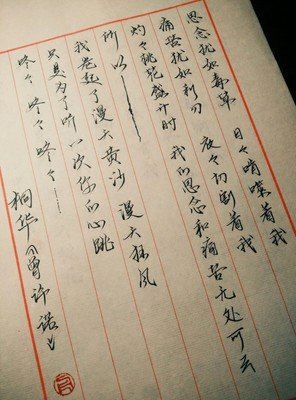 思念犹如毒草 日々啃噬着我
痛苦犹如利刃 夜々切割着我
灼々桃花盛开时 我的思念和痛苦无处可去
所以——
我卷起了漫天黄沙 漫天狂风
只是为了听一次你的心跳
咚々 咚々 咚々……
桐华《曾许诺》